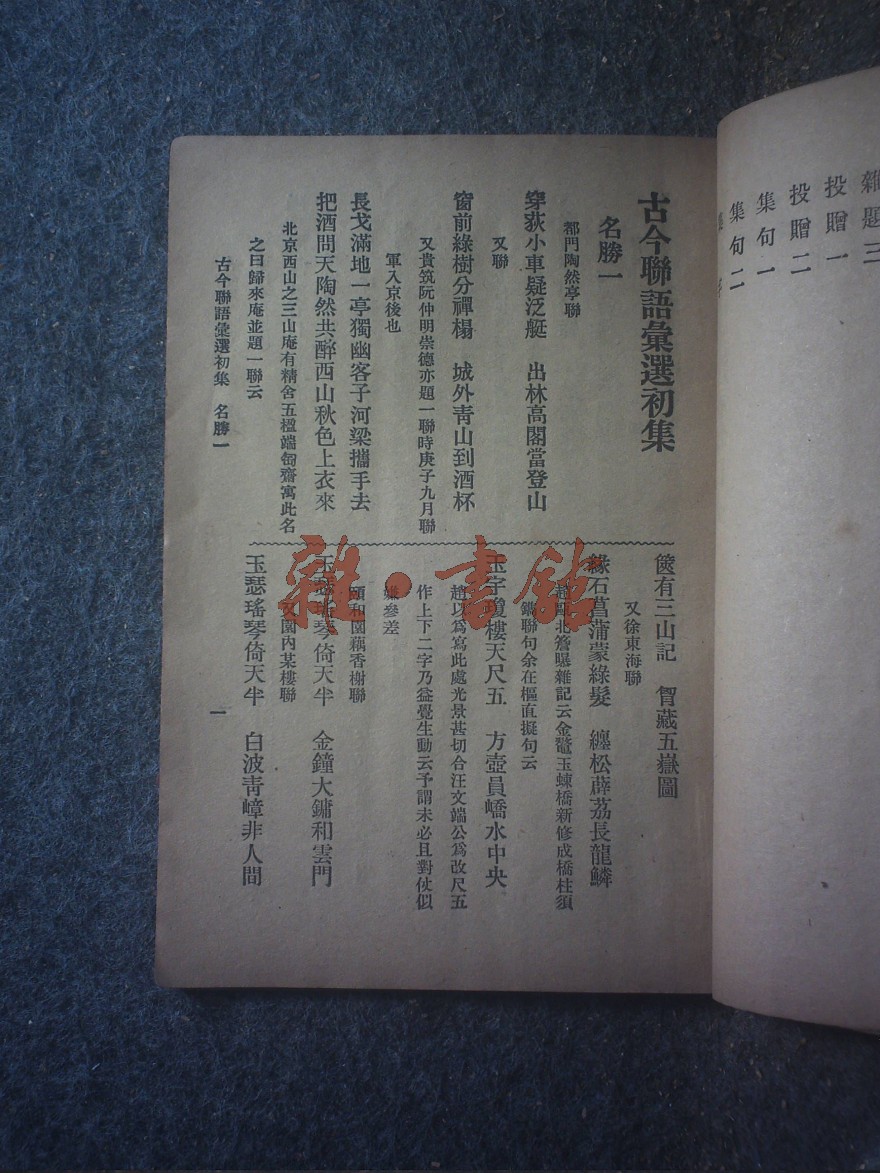 雜題三
投贈一
投贈二
集句一
集句二
古今聯語彙選初集
名勝一
都門陶然亭聯
穿荻小車疑泛艇　出林高閣當登山
又聯
窗前綠樹分禪榻　城外靑山到酒杯
又貴筑阮仲明崇德亦題一聯時庚子九月聯
軍入京後也
長戈滿地一亭獨幽客子河梁攜手去
把酒問天陶然共醉西山秋色上衣來
北京西山之三山庵有精舍五楹端匋齋寓此名
之曰歸來庵並題一聯云
古今聯語彙選初集　名勝一
篋有三山記　胷藏五嶽圖
又徐東海聯
緣石菖蒲蒙綠髮　纏松薜荔長龍鱗
趙甌北簷曝雜記云金鼇玉蝀橋新修成橋柱須
鐫聯句余在樞直擬句云
玉宇瓊樓天尺五　方壺員嶠水中央
趙以爲寫此處光景甚切合汪文端公爲改尺五
作上下二字乃益覺生動云予謂未必且對仗似
嫌參差
頤和園藕香榭聯
玉瑟瑤琴倚天半　金鐘大鏞和雲門
又園內某樓聯
玉瑟瑤琴倚天半　白波靑嶂非人間
一
雜·書館